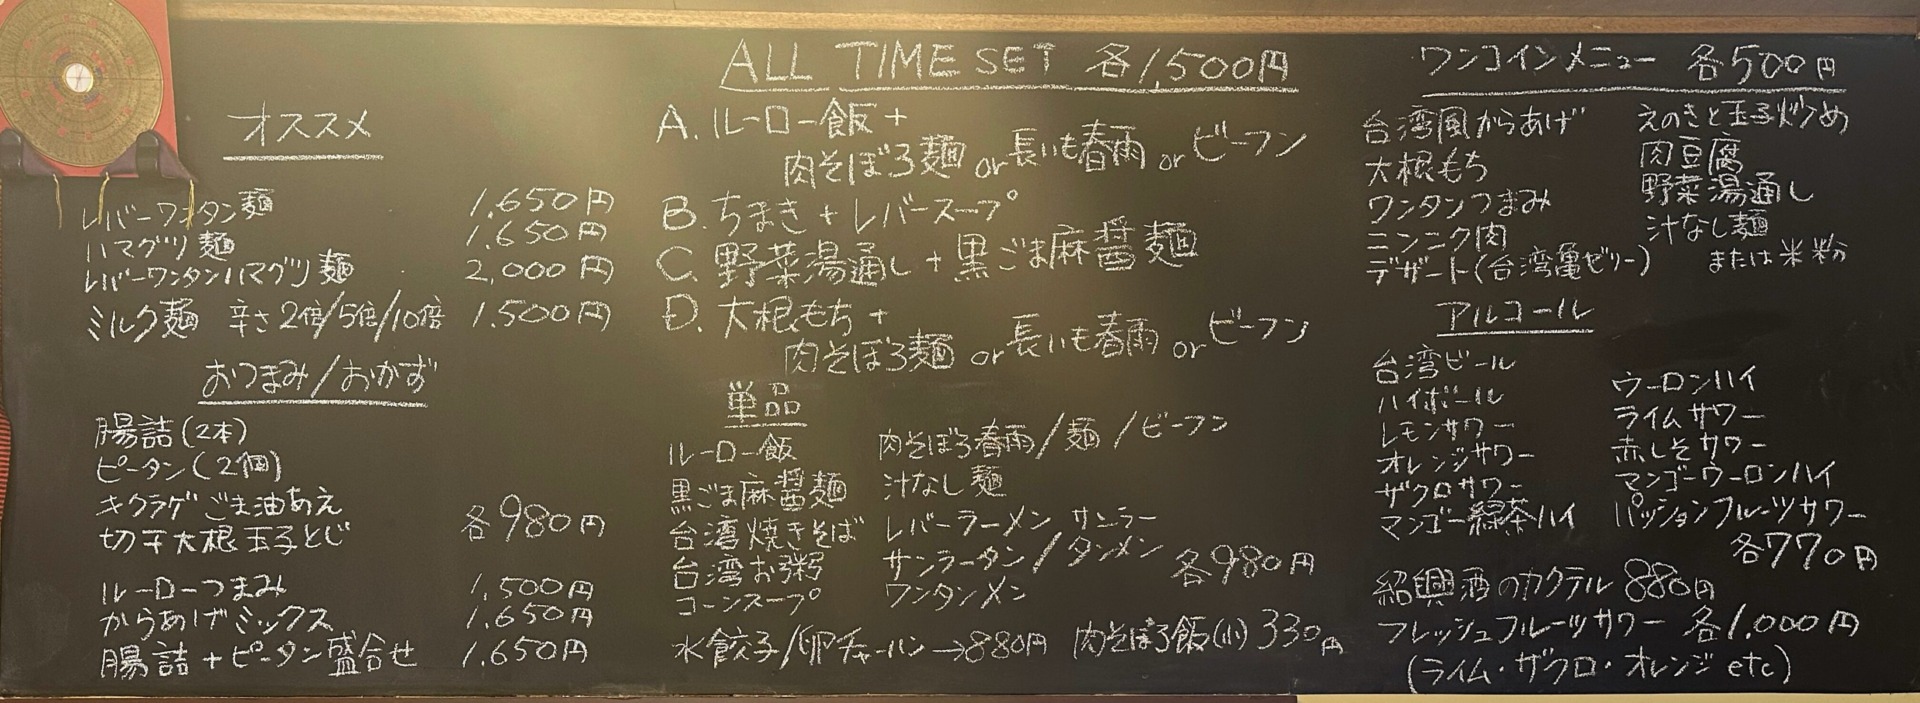 オススメ
レバーワンタン麺 1,650円
ハマグリ麺 1,650円
レバーワンタンハマグリ麺 2,000円
ミルク麺 辛さ2倍/5倍/10倍 1,500円
おつまみ/おかず
腸詰(2本)
ピータン(2個)
キクラゲごま油あえ
切干大根玉子とじ 各980円
ルーローつまみ 1,500円
からあげミックス 1,650円
腸詰+ピータン盛合せ 1,650円
ALL TIME SET 各1,500円
A. ルーロー飯+
肉そぼろ麺 or 長いも春雨 or ビーフン
B. ちまき+レバースープ
C. 野菜湯通し+黒ごま麻醤麺
D. 大根もち+
肉そぼろ麺 or 長いも春雨 or ビーフン
単品
ルーロー飯
黒ごま麻醤麺
台湾焼きそば
台湾お粥
コーンスープ
肉そぼろ春雨/麺/ビーフン
汁なし麺
レバーラーメン サンラー
サンラータン/タンメン
ワンタンメン 各980円
水餃子/卵チャーハン→880円 肉そぼろ飯(小)330円
ワンコインメニュー 各500円
台湾風からあげ
大根もち
ワンタンつまみ
ニンニク肉
デザート(台湾亀ゼリー)
えのきと玉子炒め
肉豆腐
野菜湯通し
汁なし麺
または米粉
アルコール
台湾ビール
ハイボール
レモンサワー
オレンジサワー
ザクロサワー
マンゴー緑茶ハイ
ウーロンハイ
ライムサワー
赤しそサワー
マンゴーウーロンハイ
パッションフルーツサワー
各770円
紹興酒のカクテル 880円
フレッシュフルーツサワー 各1,000円
(ライム・ザクロ・オレンジ etc)